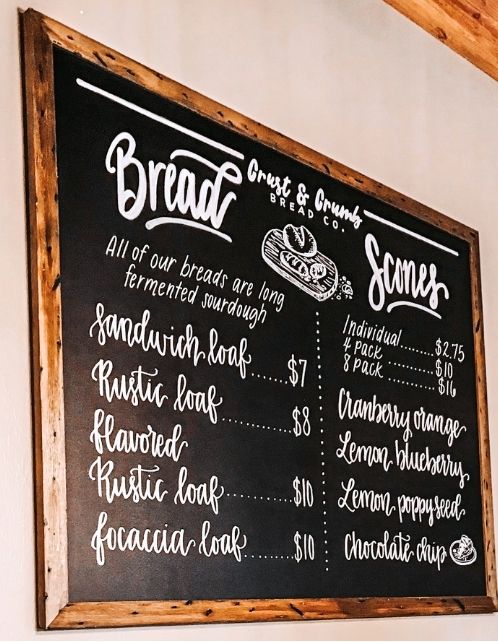 Crust & Crumb
BREAD CO.
Bread
All of our breads are long
fermented sourdough
Sandwich loaf.......$7
Rustic loaf............$8
flavored
Rustic loaf............$10
focaccia loaf.........$10
Scones
Individual........$2.75
4 Pack............$10
8 Pack............$16
Cranberry orange
Lemon blueberry
Lemon poppyseed
Chocolate chip